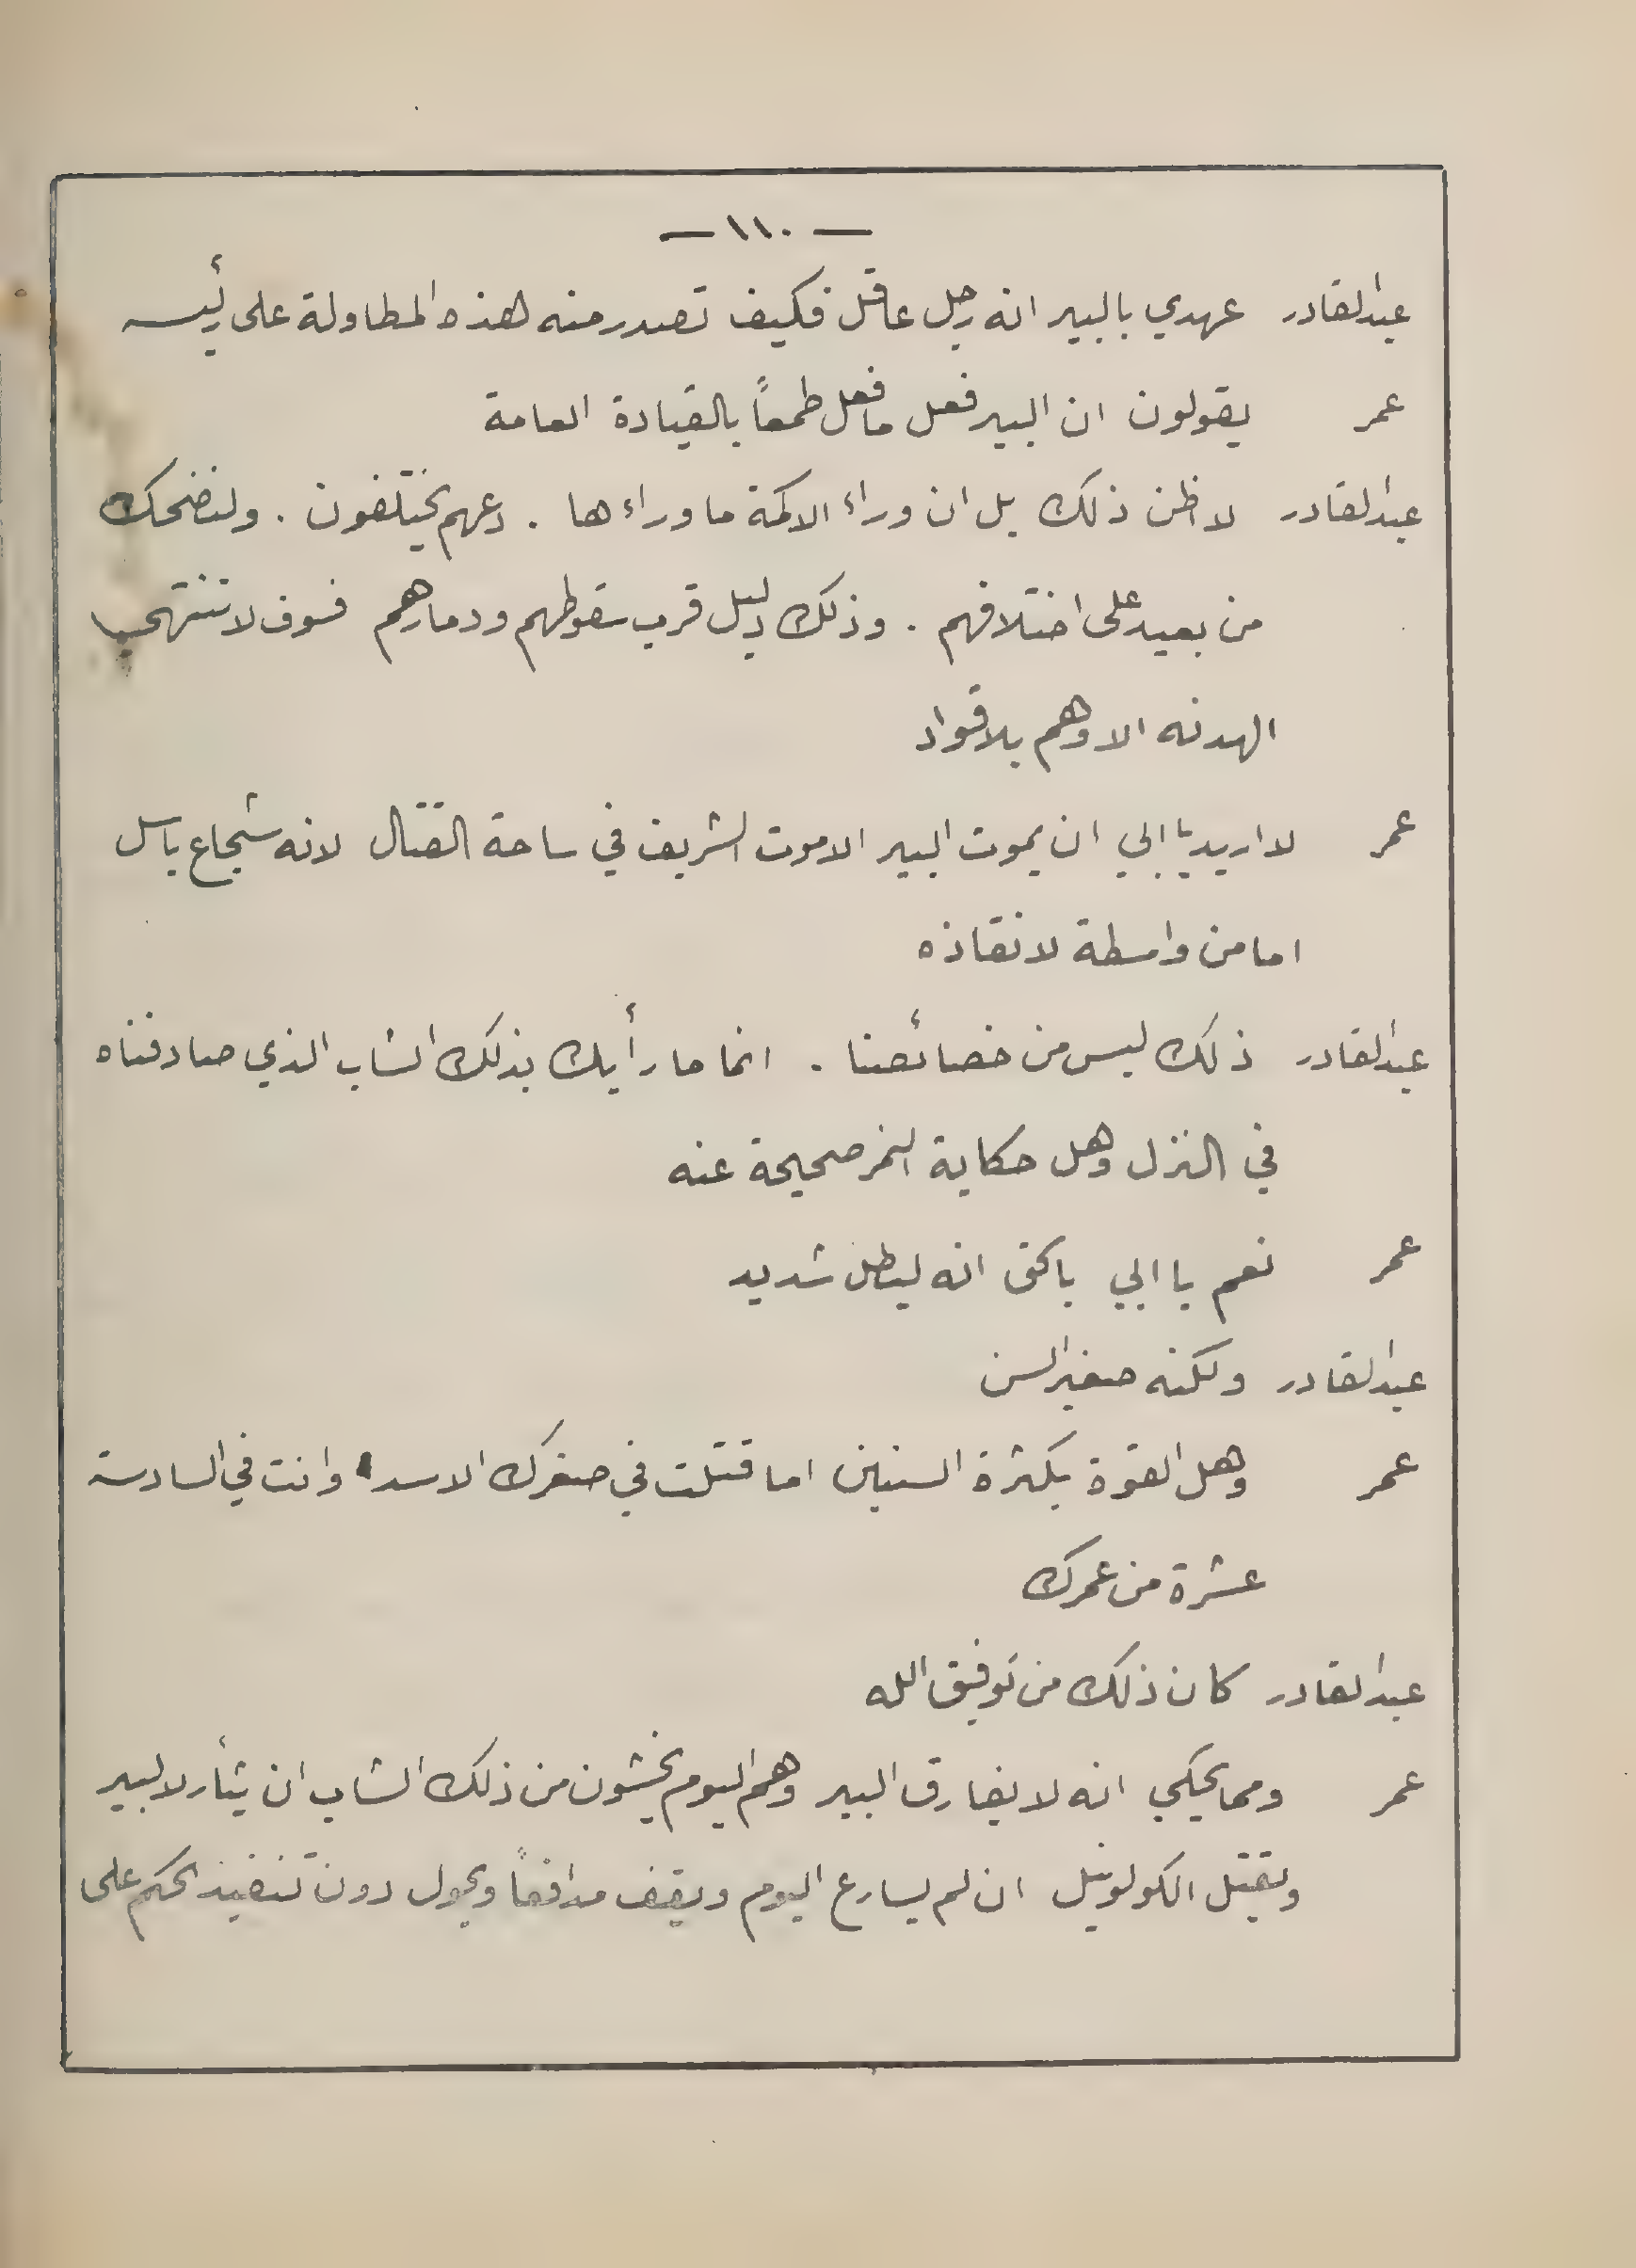 — ١١٠ —
عبد القادر عهدي بالبير انه رجل عاقل فكيف تصدر منه هذه المطاولة على رئيسه
عمر يقولون ان البير فعل ما فعل طمعاً بالقيادة العامة
عبد القادر لا اظن ذلك بل ان وراء الاكمة ما وراءها . دعهم يختلفون . ولنضحك
من بعيد على اختلافهم . وذلك دليل قرب سقوطهم ودمارهم فسوف لا تنتهي
الهدنه الا وهم بلا قواد
عمر لا اريد يا ابي ان يموت البير الا موت الشريف في ساحة القتال لانه شجاع باسل
اما من واسطة لانقاذه
عبد القادر ذلك ليس من خصائصنا . انما ما رأيك بذلك الشاب الذي صادفناه
في النزل وهل حكاية النمر صحيحة عنه
عمر نعم يا ابي بالحق انه لبطل شديد
عبد القادر ولكنه صغير السن
عمر وهل القوة بكثرة السنين اما قتلت في صغرك الاسد وانت في السادسة
عشرة من عمرك
عبد القادر كان ذلك من توفيق الله
عمر ومما يحكي انه لا يفارق البير وهم اليوم يخشون من ذلك الشاب ان يثأر لالبير
ويقتل الكولونيل ان لم يسارع اليوم ويقف مدافعاً ويحول دون تنفيذ الحكم على